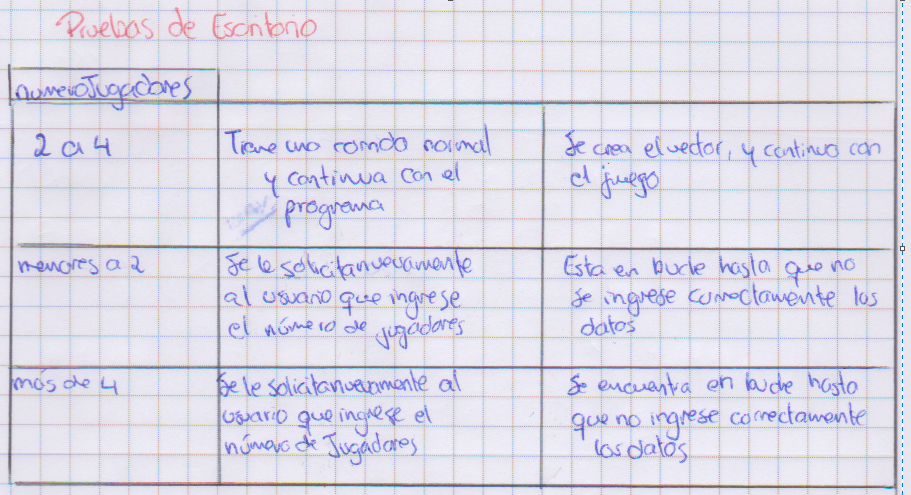 Pruebas de Escritorio
numeroJugadores
2 a 4
Tiene una corrida normal
y continua con el
programa
Se crea el vector, y continuo con
el juego
menores a 2
Se le solicita nuevamente
al usuario que ingrese
el número de jugadores
Esta en bucle hasta que no
se ingrese correctamente los
datos
más de 4
Se le solicita nuevamente al
usuario que ingrese el
número de Jugadores
Se encuentra en bucle hasta
que no ingrese correctamente
los datos